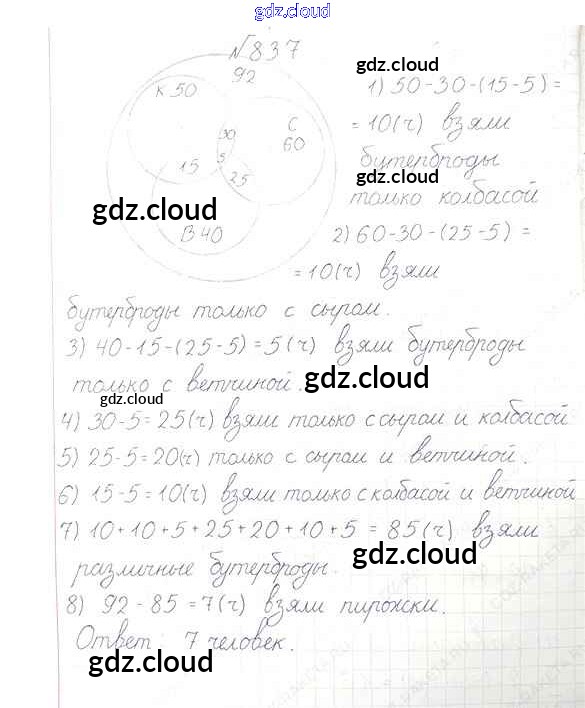 gdz.cloud
№837
92
gdz.cloud
К 50
1) 50-30-(15-5)=
30
С
60
= 10(ч) взяли
5
15
25
бутерброды
только колбасой
gdz.cloud
gdz.cloud
В 40
2) 60-30-(25-5) =
= 10(ч) взяли
бутерброды только с сыром.
3) 40-15-(25-5)=5(ч) взяли бутерброды
gdz.cloud
только с ветчиной.
gdz.cloud
gdz.cloud
4) 30-5=25(ч) взяли только с сыром и колбасой
5) 25-5=20(ч) только с сыром и ветчиной.
6) 15-5=10(ч) взяли только с колбасой и ветчиной
7) 10+10+5+25+20+10+5 = 85(ч) взяли
gdz.cloud
различные бутерброды.
8) 92-85=7(ч) взяли пирожки.
Ответ: 7 человек.
gdz.cloud